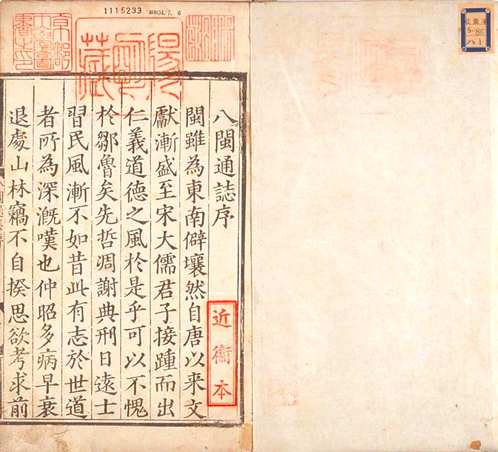 八閩通誌序
閩雖為東南僻壤然自唐以來文
獻漸盛至宋大儒君子接踵而出
仁義道德之風於是乎可以不愧
於鄒魯矣先哲凋謝典刑日遠士
習民風漸不如昔此有志於世道
者所為深慨嘆也仲昭多病早衰
退處山林竊不自揆思欲考求前
近衛本
1115233